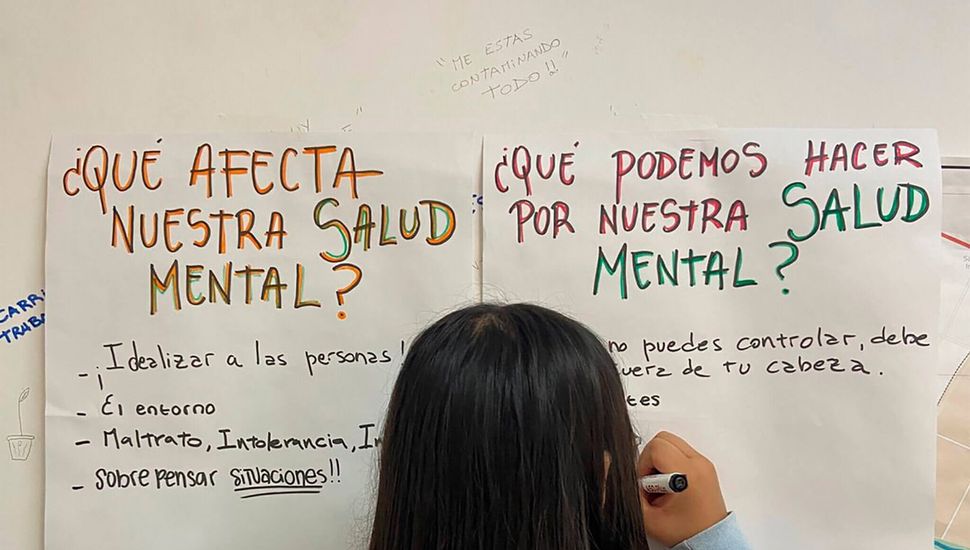 "ME ESTAS
CONTAMINANDO
TODO!!"
¿QUÉ AFECTA
NUESTRA SALUD
MENTAL?
- ¡Idealizar a las personas!
- El entorno
- Maltrato, Intolerancia,
- Sobre pensar situaciones!!
¿QUÉ PODEMOS HACER
POR NUESTRA SALUD
MENTAL?
no puedes controlar, debe
de tu cabeza.